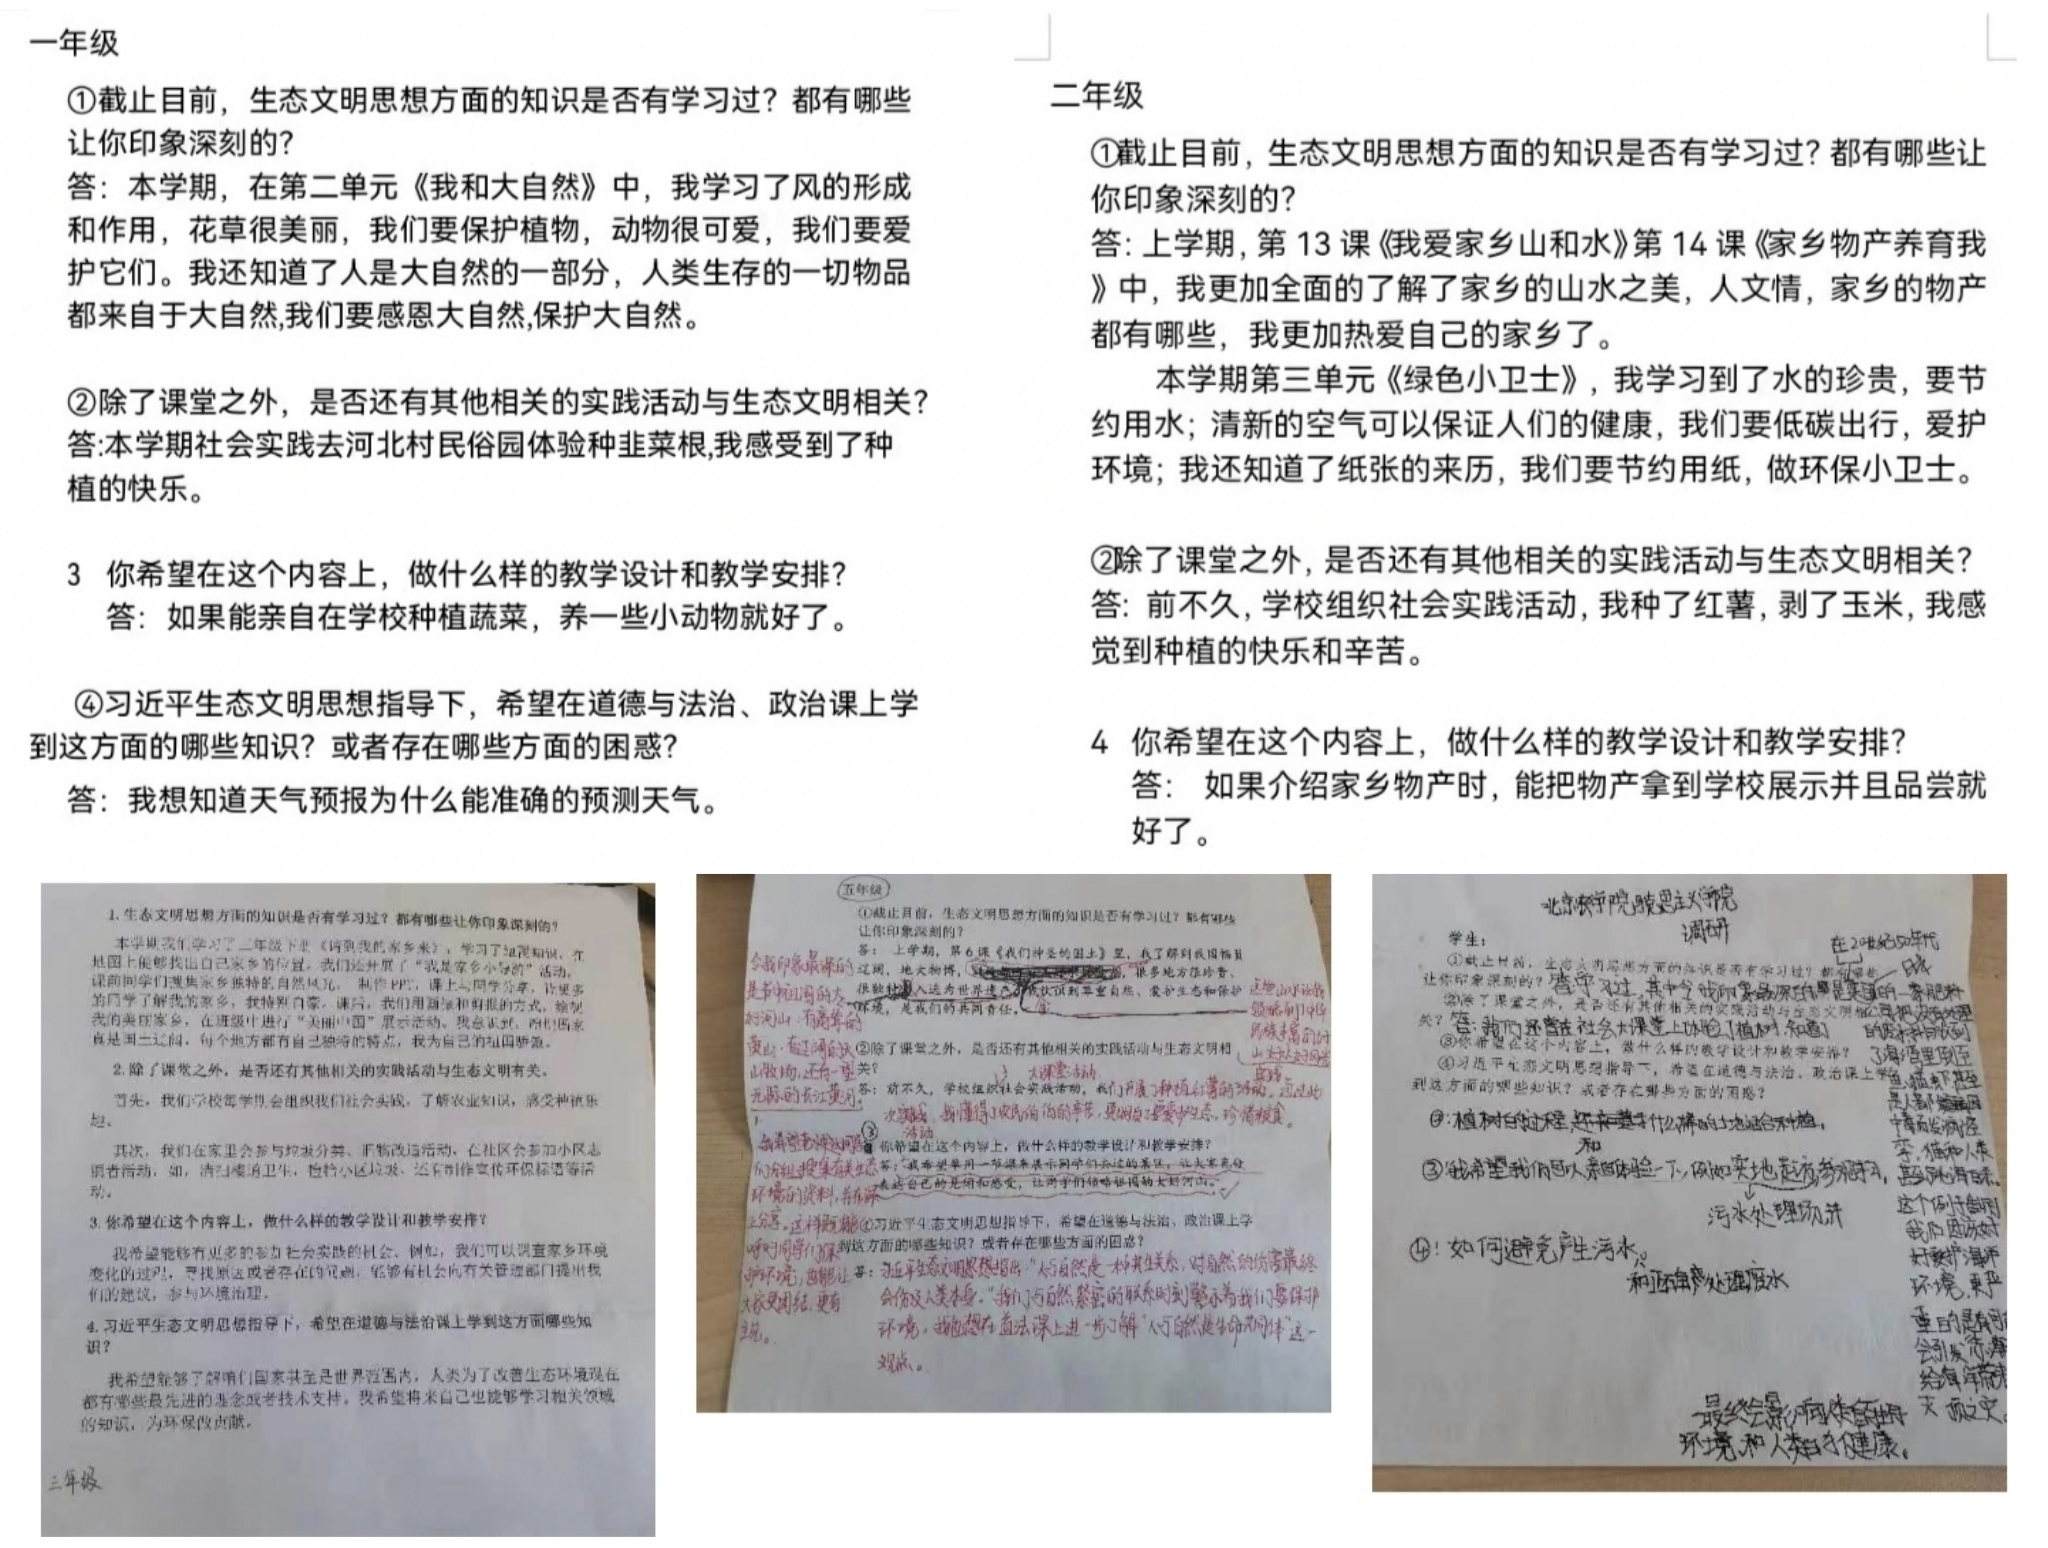 一年级
①截止目前，生态文明思想方面的知识是否有学习过？都有哪些
让你印象深刻的？
答：本学期，在第二单元《我和大自然》中，我学习了风的形成
和作用，花草很美丽，我们要保护植物，动物很可爱，我们要爱
护它们。我还知道了人是大自然的一部分，人类生存的一切物品
都来自于大自然,我们要感恩大自然,保护大自然。
②除了课堂之外，是否还有其他相关的实践活动与生态文明相关？
答:本学期社会实践去河北村民俗园体验种韭菜根,我感受到了种
植的快乐。
3 你希望在这个内容上，做什么样的教学设计和教学安排？
答：如果能亲自在学校种植蔬菜，养一些小动物就好了。
④习近平生态文明思想指导下，希望在道德与法治、政治课上学
到这方面的哪些知识？或者存在哪些方面的困惑？
答：我想知道天气预报为什么能准确的预测天气。
二年级
①截止目前，生态文明思想方面的知识是否有学习过？都有哪些让
你印象深刻的？
答：上学期，第 13 课《我爱家乡山和水》第 14 课《家乡物产养育我
》中，我更加全面的了解了家乡的山水之美，人文情，家乡的物产
都有哪些，我更加热爱自己的家乡了。
本学期第三单元《绿色小卫士》，我学习到了水的珍贵，要节
约用水；清新的空气可以保证人们的健康，我们要低碳出行，爱护
环境；我还知道了纸张的来历，我们要节约用纸，做环保小卫士。
②除了课堂之外，是否还有其他相关的实践活动与生态文明相关？
答：前不久，学校组织社会实践活动，我种了红薯，剥了玉米，我感
觉到种植的快乐和辛苦。
4 你希望在这个内容上，做什么样的教学设计和教学安排？
答： 如果介绍家乡物产时，能把物产拿到学校展示并且品尝就
好了。
1. 生态文明思想方面的知识是否有学习过？都有哪些让你印象深刻的？
本学期我们学习了三年级下册《请到我的家乡来》，学习了地理知识，在
地图上能够找出自己家乡的位置。我们还开展了“我是家乡小导游”活动，
课前同学们搜集家乡独特的自然风光，制作PPT，课上与同学分享，让更多
的同学了解我的家乡，我特别自豪。课后，我们用画笔和剪报的方式，绘制
我的美丽家乡，在班级中进行“美丽中国”展示活动。我意识到，祖国国家
真是国土辽阔，每个地方都有自己独特的特点，我为自己的祖国骄傲。
2. 除了课堂之外，是否还有其他相关的实践活动与生态文明有关。
首先，我们学校每学期会组织我们社会实践，了解农业知识，感受种植乐
趣。
其次，我们在家里会参与垃圾分类、旧物改造活动，在社区会参加小区志
愿者活动，如，清扫楼道卫生，捡拾小区垃圾，还有制作宣传环保标语等活
动。
3. 你希望在这个内容上，做什么样的教学设计和教学安排？
我希望能够有更多的参加社会实践的机会。例如，我们可以调查家乡环境
变化的过程，寻找原因或者存在的问题，能够有机会向有关管理部门提出我
们的建议，参与环境治理。
4. 习近平生态文明思想指导下，希望在道德与法治课上学到这方面哪些知
识？
我希望能够了解咱们国家甚至是世界范围内，人类为了改善生态环境现在
都有哪些最先进的理念或者技术支持。我希望将来自己也能够学习相关领域
的知识，为环保做贡献。
三年级
五年级
①截止目前，生态文明思想方面的知识是否有学习过？都有哪些
让你印象深刻的？
答：上学期，第6课《我们神圣的国土》里，我了解到我国幅员
辽阔，地大物博，很多地方很珍贵、
很独特，入选为世界遗产。我认识到尊重自然、爱护生态和保护
环境，是我们的共同责任。
令我印象最深的
是我们祖国的大
好河山：有高耸的
黄山，有辽阔的
无际的长江黄河。
②除了课堂之外，是否还有其他相关的实践活动与生态文明相
关？
大课堂活动
答：前不久，学校组织社会实践活动，我们开展了种植红薯的活动。通过此
次实践活动，我懂得了农民伯伯的辛苦，更明白了要爱护生态，珍惜粮食。
③你希望在这个内容上，做什么样的教学设计和教学安排？
答：我希望单用一节课来展示同学们去过的景区，让大家充分
表达自己的见闻和感受，让同学们领略祖国的大好河山。
④习近平生态文明思想指导下，希望在道德与法治、政治课上学
到这方面的哪些知识？或者存在哪些方面的困惑？
答：习近平生态文明思想指出：“人与自然是一种共生关系，对自然的伤害最终
会伤及人类本身。”我们与自然紧密的联系时刻警示着我们要保护
环境。我也想在道法课上进一步了解“人与自然是生命共同体”这一
观点。
北京教育学院马克思主义学院
调研
学生：
①截止目前，生态文明思想方面的知识是否有学习过？都有哪些
让你印象深刻的？
②除了课堂之外，是否还有其他相关的实践活动与生态文明相
关？答：我们还曾在社会大课堂上体验了植树，知道了
③你希望在这个内容上，做什么样的教学设计和教学安排？
④习近平生态文明思想指导下，希望在道德与法治、政治课上学
到这方面的哪些知识？或者存在哪些方面的困惑？
②：植树的过程和什么样的土地适合种植。
③我希望我们可以亲自体验一下，例如实地走访参观学习，
污水处理场等
④：如何避免产生污水，
和还有怎样处理废水
最终会影响
环境和人类的健康。